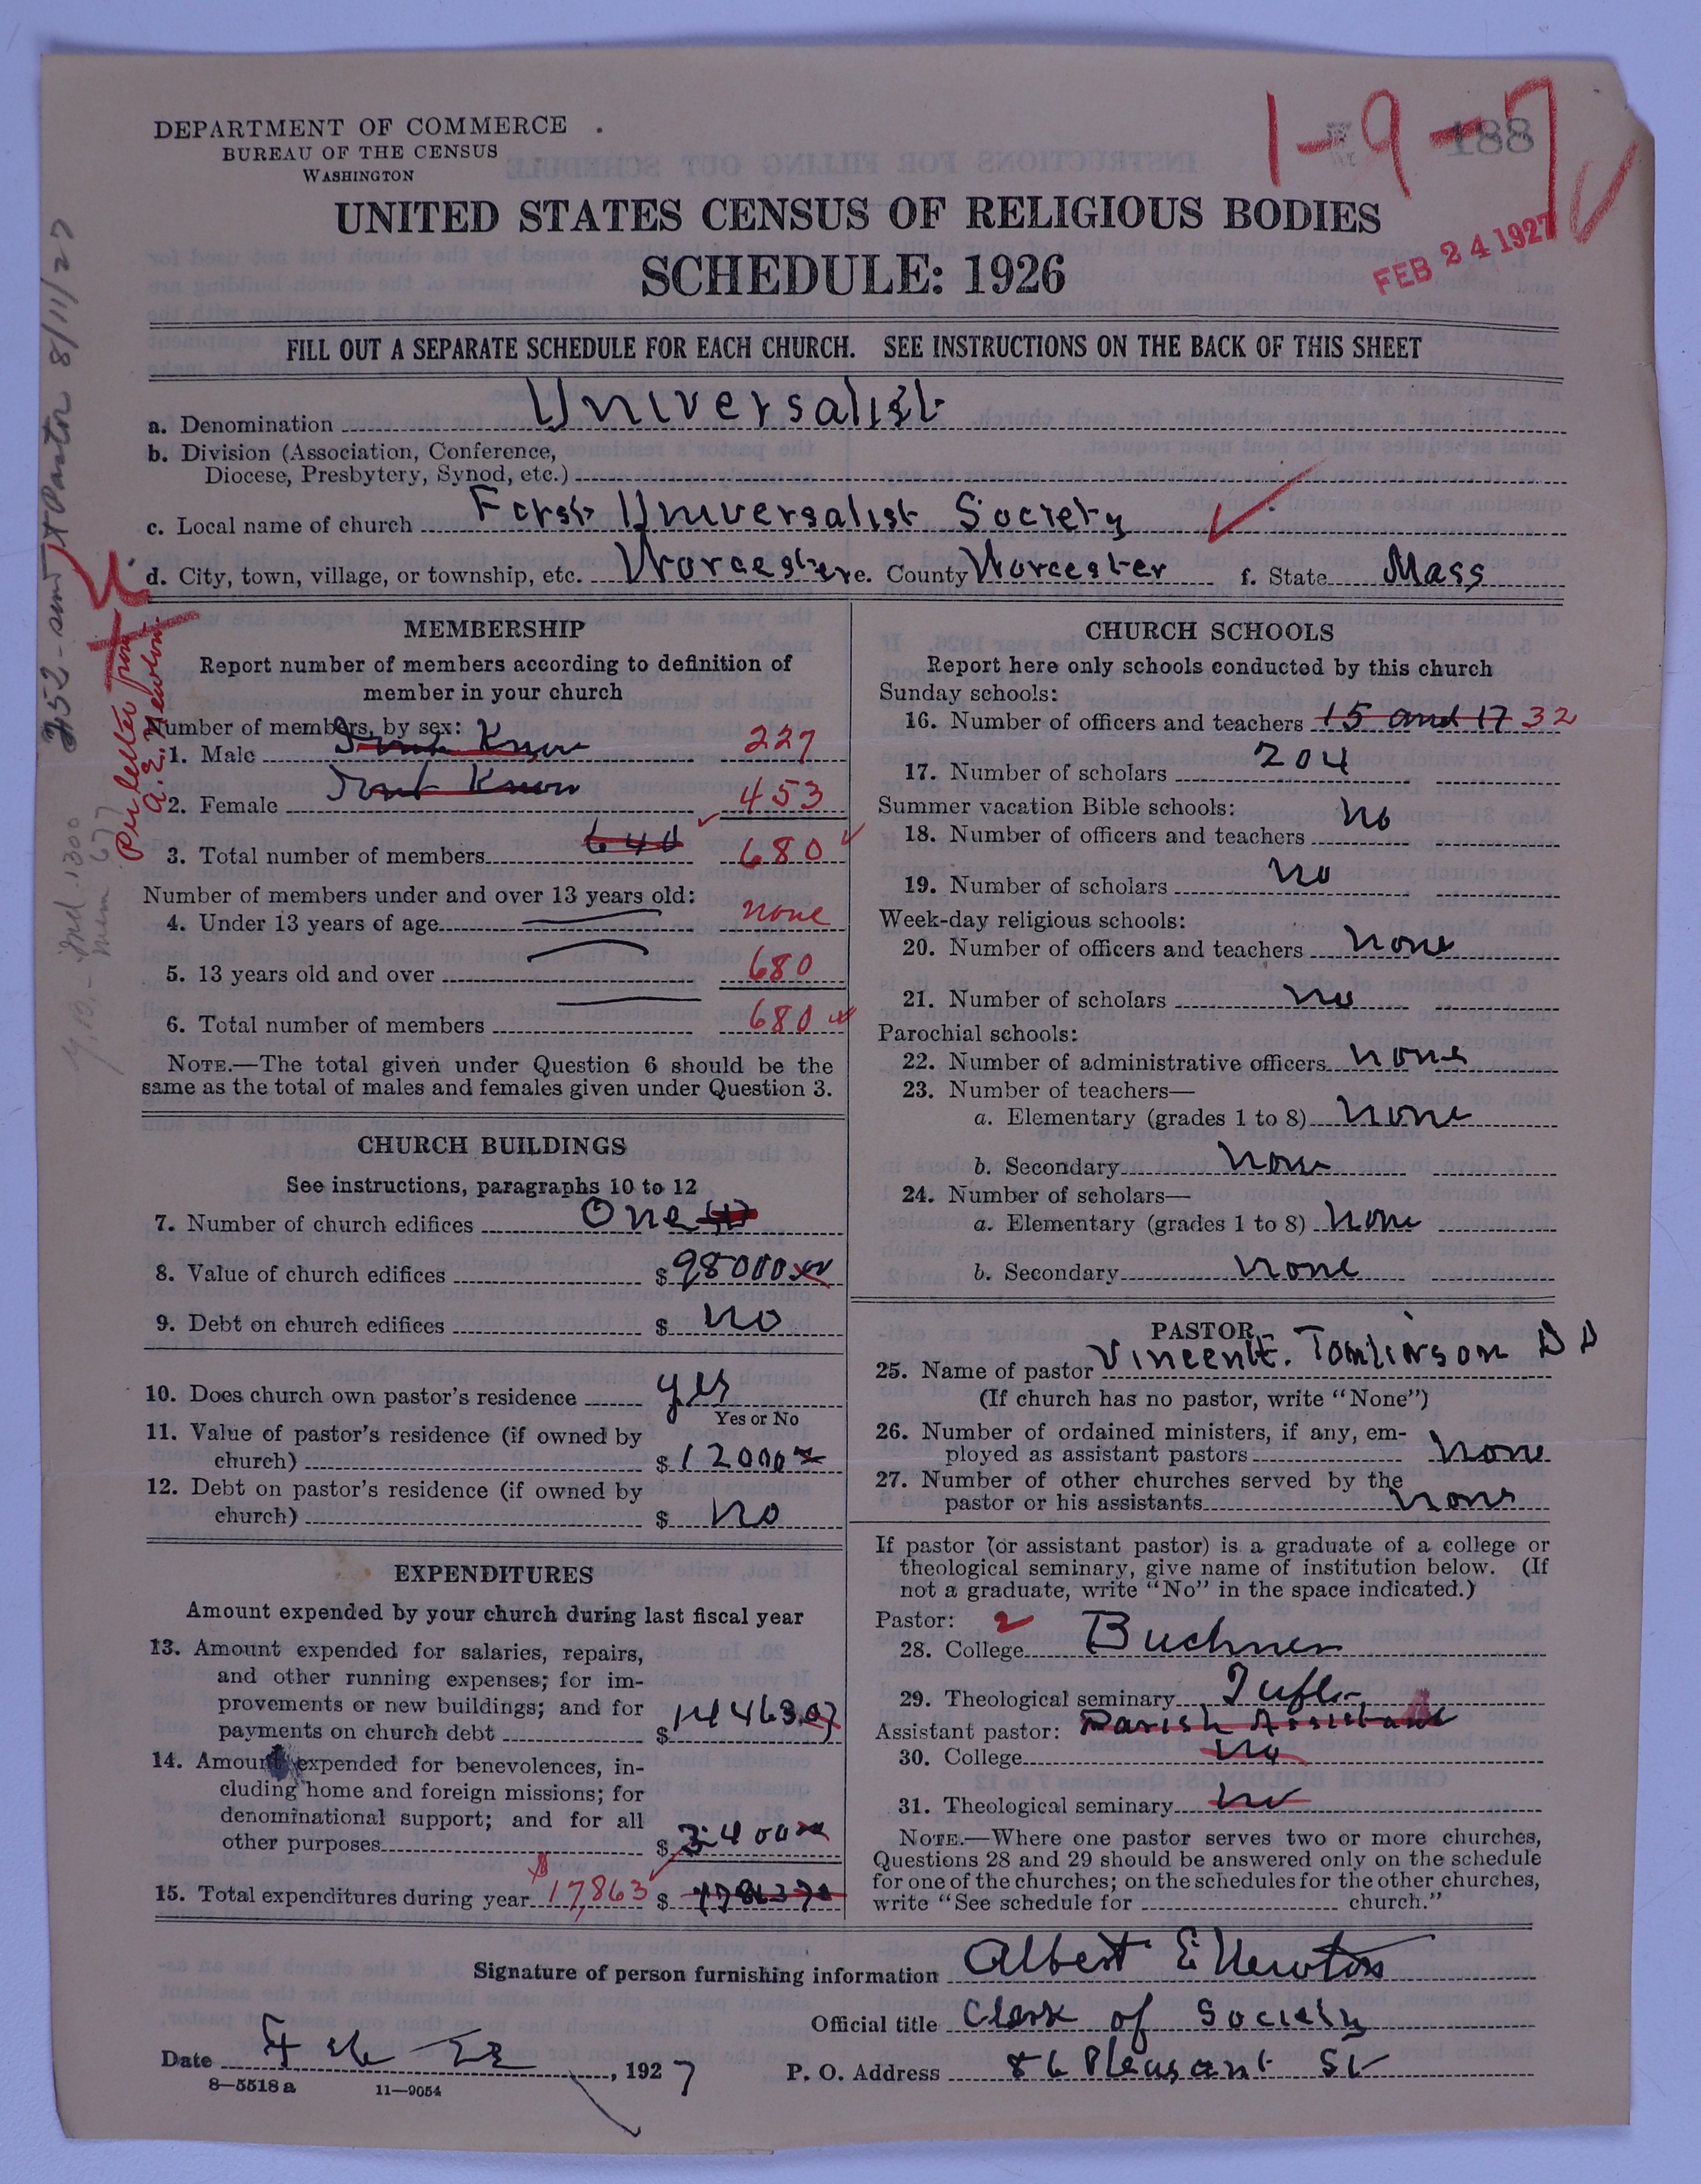 DEPARTMENT OF COMMERCE
BUREAU OF THE CENSUS
WASHINGTON
1-9-7
188
UNITED STATES CENSUS OF RELIGIOUS BODIES
SCHEDULE: 1926
FEB 24 1927
FILL OUT A SEPARATE SCHEDULE FOR EACH CHURCH. SEE INSTRUCTIONS ON THE BACK OF THIS SHEET
a. Denomination Universalist
b. Division (Association, Conference,
Diocese, Presbytery, Synod, etc.)
c. Local name of church First Universalist Society
d. City, town, village, or township, etc. Worcester e. County Worcester f. State Mass
252 - sent Pastor 8/11/27
Per letter from
A. E. Newton
MEMBERSHIP
Report number of members according to definition of
member in your church
Number of members, by sex:
1. Male Dont Know 227
2. Female Dont Know 453
3. Total number of members 640 680
Number of members under and over 13 years old:
4. Under 13 years of age none
5. 13 years old and over 680
6. Total number of members 680
NOTE.—The total given under Question 6 should be the
same as the total of males and females given under Question 3.
CHURCH BUILDINGS
See instructions, paragraphs 10 to 12
7. Number of church edifices One (1)
8. Value of church edifices $ 98000.00
9. Debt on church edifices $ no
10. Does church own pastor's residence yes
Yes or No
11. Value of pastor's residence (if owned by
church) $ 12000
12. Debt on pastor's residence (if owned by
church) $ no
EXPENDITURES
Amount expended by your church during last fiscal year
13. Amount expended for salaries, repairs,
and other running expenses; for im-
provements or new buildings; and for
payments on church debt $ 14463.07
14. Amount expended for benevolences, in-
cluding home and foreign missions; for
denominational support; and for all
other purposes $ 3400
15. Total expenditures during year $17,863 $
CHURCH SCHOOLS
Report here only schools conducted by this church
Sunday schools:
16. Number of officers and teachers 15 and 17 32
17. Number of scholars 204
Summer vacation Bible schools:
18. Number of officers and teachers no
19. Number of scholars no
Week-day religious schools:
20. Number of officers and teachers none
21. Number of scholars no
Parochial schools:
22. Number of administrative officers none
23. Number of teachers—
a. Elementary (grades 1 to 8) none
b. Secondary none
24. Number of scholars—
a. Elementary (grades 1 to 8) none
b. Secondary none
PASTOR
25. Name of pastor Vincent E. Tomlinson D D
(If church has no pastor, write "None")
26. Number of ordained ministers, if any, em-
ployed as assistant pastors none
27. Number of other churches served by the
pastor or his assistants none
If pastor (or assistant pastor) is a graduate of a college or
theological seminary, give name of institution below. (If
not a graduate, write "No" in the space indicated.)
Pastor: 2
28. College Buchner
29. Theological seminary Tufts
Assistant pastor: Parish Assistant
30. College no
31. Theological seminary no
NOTE.—Where one pastor serves two or more churches,
Questions 28 and 29 should be answered only on the schedule
for one of the churches; on the schedules for the other churches,
write "See schedule for church."
Signature of person furnishing information Albert E Newton
Official title Clerk of Society
Date Feb 22, 1927 P. O. Address 86 Pleasant St
8-5518 a 11-9054